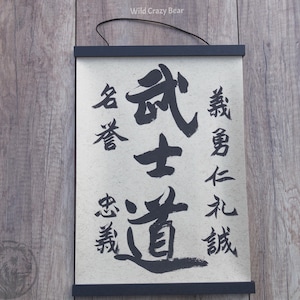 Wild Crazy Bear
義勇仁礼誠
武士道
名誉
忠義